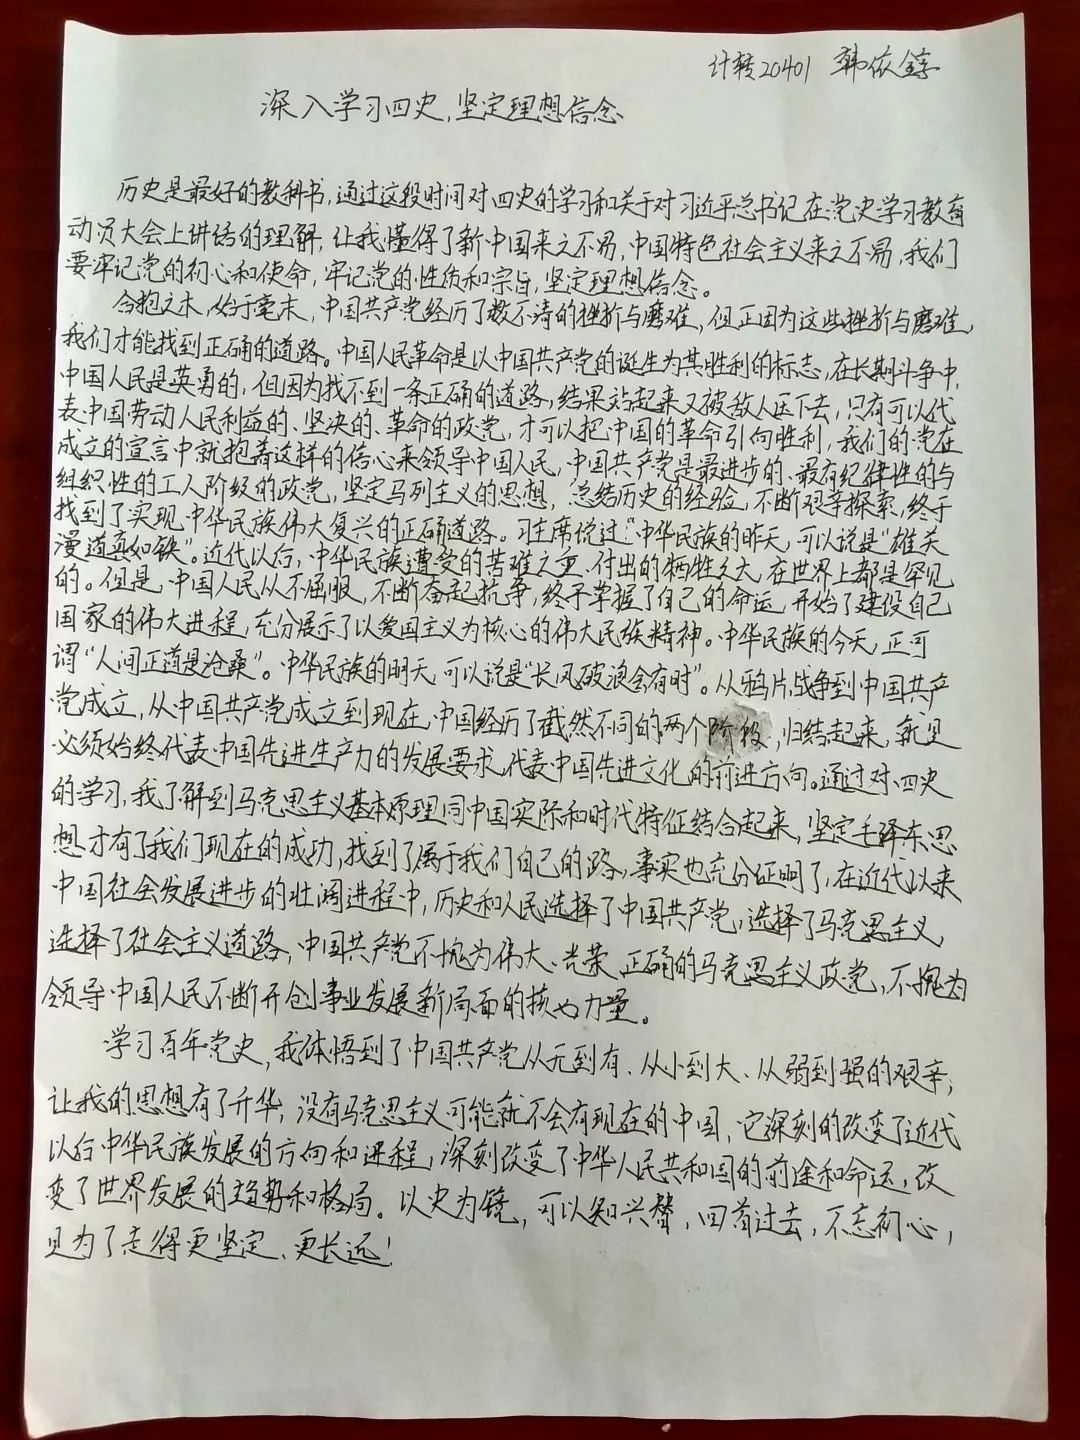 计转20401 韩依錞
深入学习四史,坚定理想信念
历史是最好的教科书,通过这段时间对四史的学习和关于对习近平总书记在党史学习教育
动员大会上讲话的理解,让我懂得了新中国来之不易,中国特色社会主义来之不易,我们
要牢记党的初心和使命,牢记党的性质和宗旨,坚定理想信念。
合抱之木,始于毫末,中国共产党经历了数不清的挫折与磨难,但正因为这些挫折与磨难,
我们才能找到正确的道路。中国人民革命是以中国共产党的诞生为其胜利的标志,在长期斗争中,
中国人民是英勇的,但因为找不到一条正确的道路,结果站起来又被敌人压下去,只有可以代
表中国劳动人民利益的、坚决的、革命的政党,才可以把中国的革命引向胜利,我们的党在
成立的宣言中就抱着这样的信心来领导中国人民,中国共产党是最进步的、最有纪律性的与
组织性的工人阶级的政党,坚定马列主义的思想,总结历史的经验,不断艰辛探索,终于
找到了实现中华民族伟大复兴的正确道路。习主席说过:“中华民族的昨天,可以说是“雄关
漫道真如铁”。近代以后,中华民族遭受的苦难之重、付出的牺牲之大,在世界上都是罕见
的。但是,中国人民从不屈服,不断奋起抗争,终于掌握了自己的命运,开始了建设自己
国家的伟大进程,充分展示了以爱国主义为核心的伟大民族精神。中华民族的今天,正可
谓“人间正道是沧桑”。中华民族的明天,可以说是“长风破浪会有时”。从鸦片战争到中国共产
党成立,从中国共产党成立到现在,中国经历了截然不同的两个阶段,归结起来,就是
必须始终代表中国先进生产力的发展要求,代表中国先进文化的前进方向。通过对四史
的学习,我了解到马克思主义基本原理同中国实际和时代特征结合起来,坚定毛泽东思
想才有了我们现在的成功,找到了属于我们自己的路,事实也充分证明了,在近代以来
中国社会发展进步的壮阔进程中,历史和人民选择了中国共产党,选择了马克思主义,
选择了社会主义道路,中国共产党不愧为伟大、光荣、正确的马克思主义政党,不愧为
领导中国人民不断开创事业发展新局面的核心力量。
学习百年党史,我体悟到了中国共产党从无到有、从小到大、从弱到强的艰辛,
让我的思想有了升华,没有马克思主义可能就不会有现在的中国,它深刻的改变了近代
以后中华民族发展的方向和进程,深刻改变了中华人民共和国的前途和命运,改
变了世界发展的趋势和格局。以史为镜,可以知兴替,回首过去,不忘初心,
只为了走得更坚定、更长远!